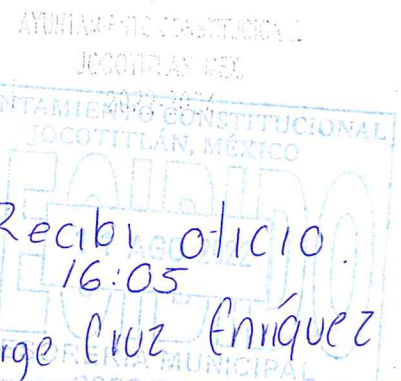 AYUNTAMIENTO CONSTITUCIONAL
JOCOTITLAN MEX.
2022-2024
NTAMIENTO CONSTITUCIONAL
JOCOTITLÁN, MÉXICO
ECIBIDO
Recibi oficio.
16:05
rge Cruz Enríquez
MUNICIPAL